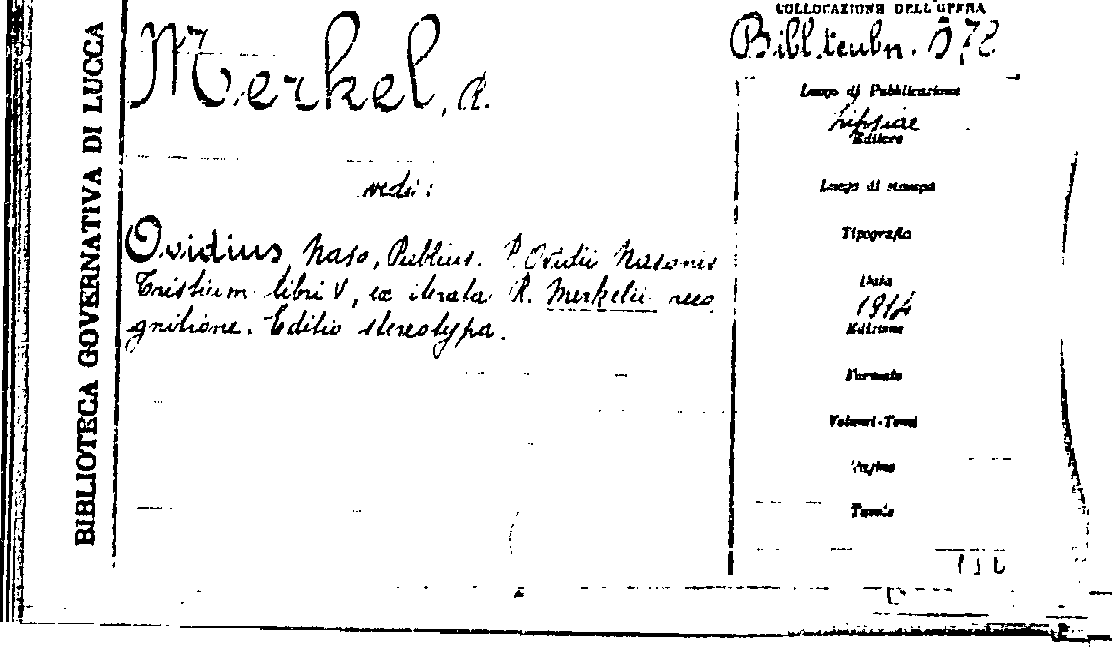 BIBLIOTECA GOVERNATIVA DI LUCCA
Merkel, R.
vedi:
Ovidius Naso, Publius. P. Ovidii Nasonis
Tristium libri V, ex iterata R. Merkelii reco
gnitione. Editio stereotypa.
COLLOCAZIONE DELL'OPERA
Bibl. teubn.
Luogo di Pubblicazione
Lipsiae
Editore
Luogo di stampa
Tipografia
Data
1914
Edizione
Formato
Volumi-Tomi
Pagine
Tavole